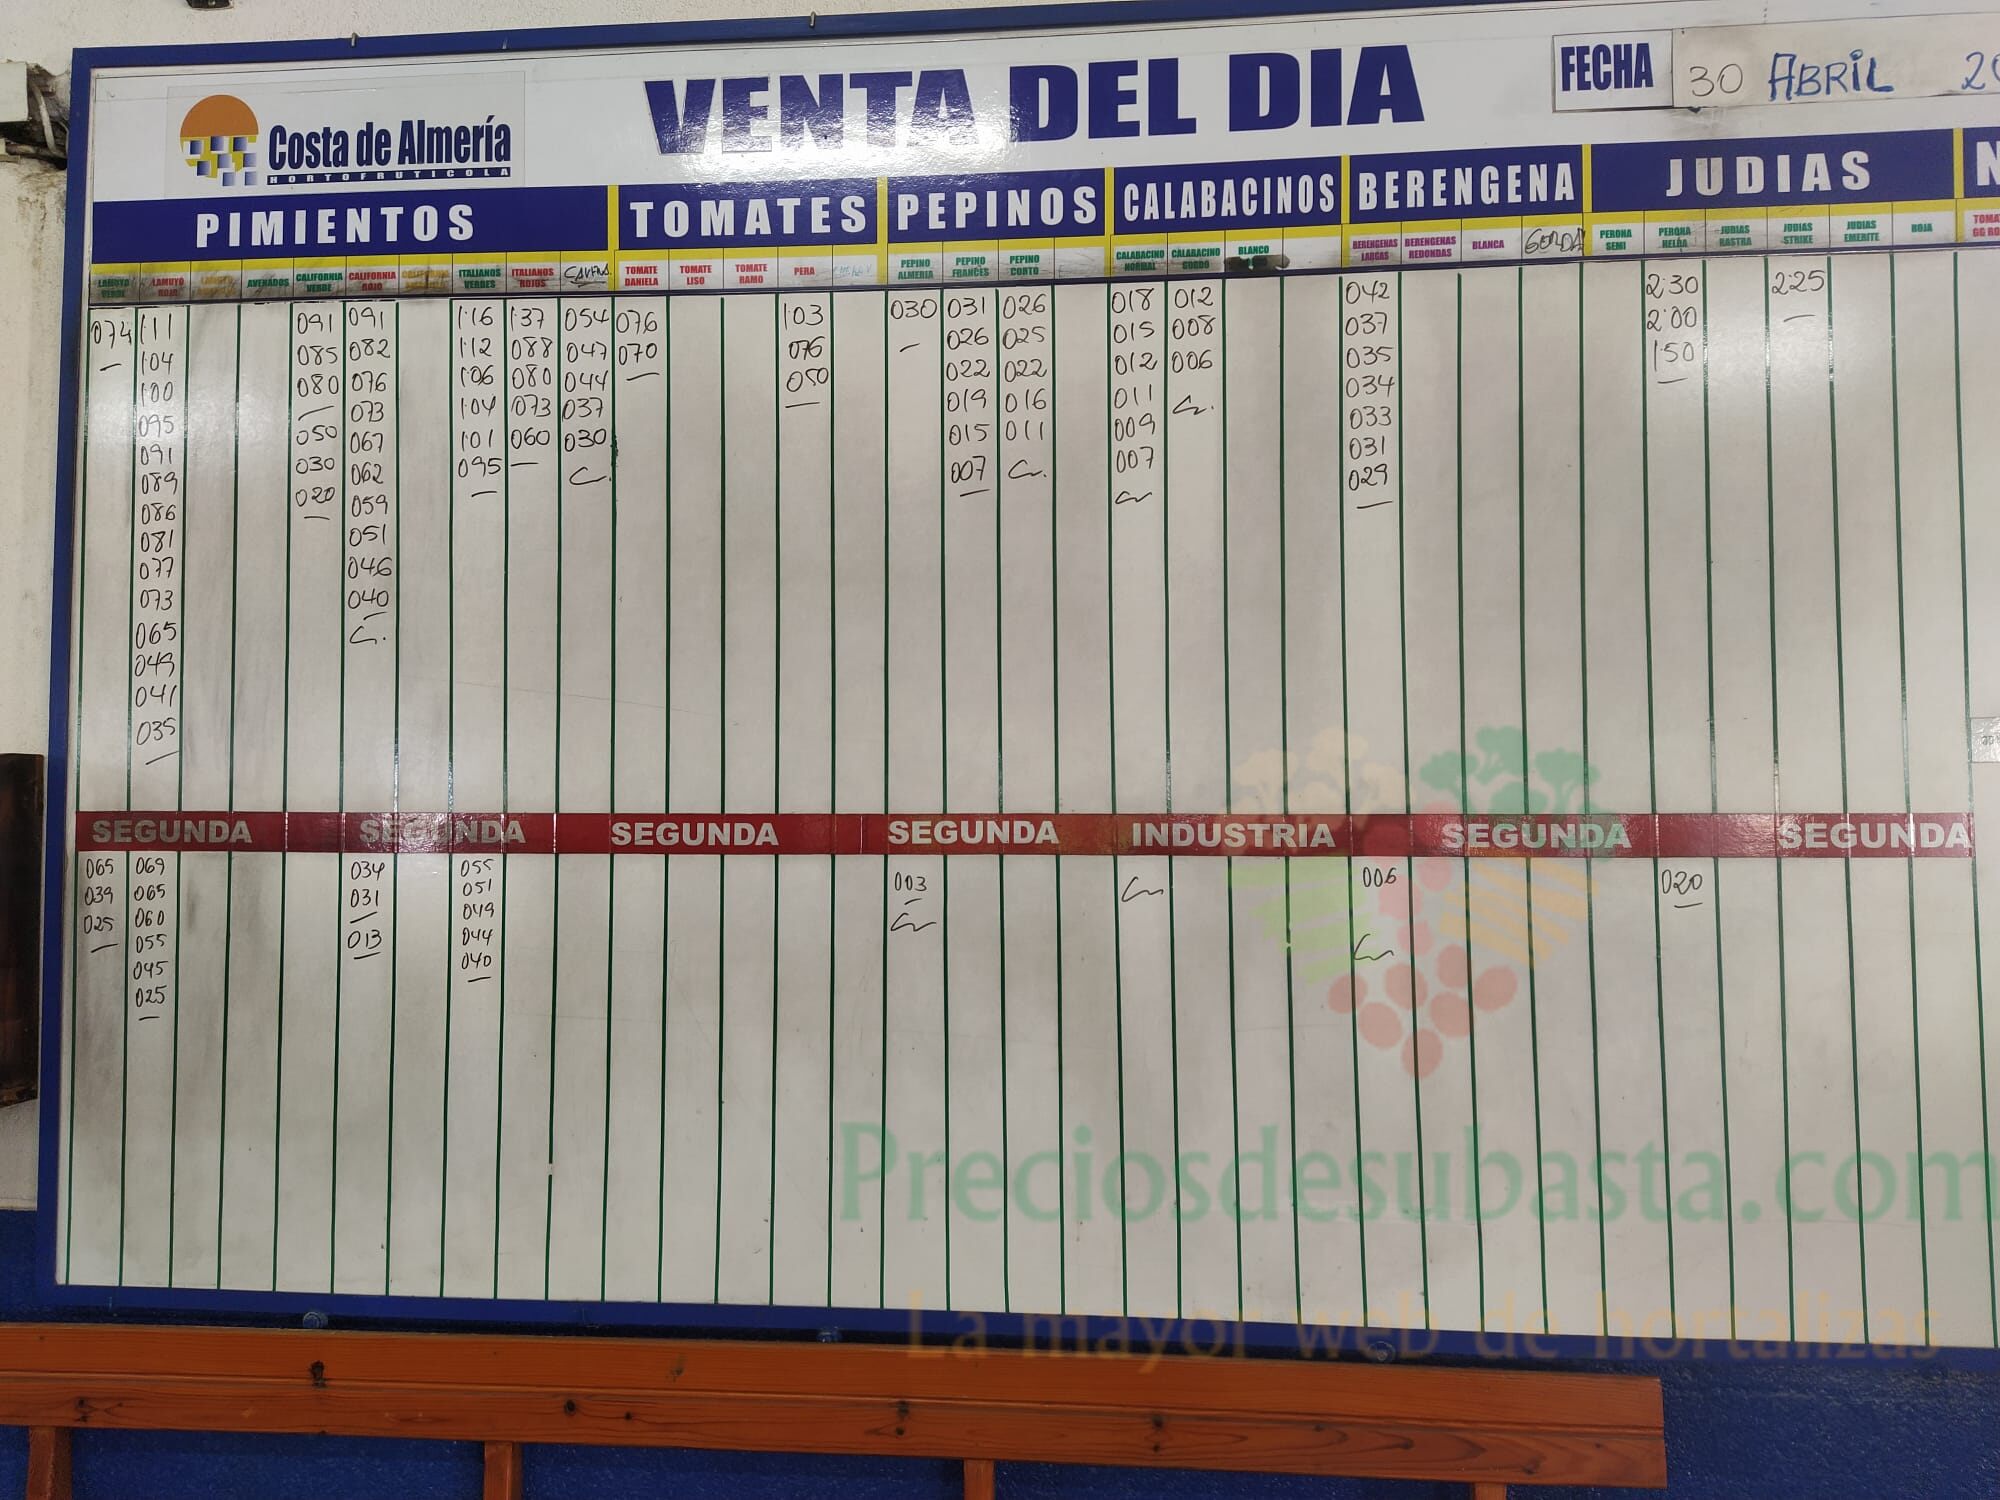 Costa de Almería
HORTOFRUTICOLA
VENTA DEL DIA
FECHA 30 ABRIL 20
PIMIENTOS TOMATES PEPINOS CALABACINOS BERENGENA JUDIAS N
LAMUYO VERDE
LAMUYO ROJO
AVENADOS
CALIFORNIA VERDE
CALIFORNIA ROJO
CALIFORNIA
ITALIANOS VERDES
ITALIANOS ROJOS
TOMATE DANIELA
TOMATE LISO
TOMATE RAMO
PERA
PEPINO ALMERIA
PEPINO FRANCÉS
PEPINO CORTO
CALABACINO NORMAL
CALABACINO GORDO
BLANCO
BERENGENAS LARGAS
BERENGENAS REDONDAS
BLANCA
GORDA
PERONA SEMI
PERONA HELDA
JUDIAS RASTRA
JUDIAS STRIKE
JUDIAS EMERITE
ROJA
TOMA
GG RO
074
1'11
1'04
1'00
095
091
089
086
081
077
073
065
049
041
035
091
085
080
050
030
020
091
082
076
073
067
062
059
051
046
040
1'16
1'12
1'06
1'04
1'01
095
1'37
088
080
073
060
054
047
044
037
030
076
070
1'03
076
050
030
031
026
022
019
015
007
026
025
022
016
011
018
015
012
011
009
007
012
008
006
042
037
035
034
033
031
029
2'30
2'00
1'50
2'25
SEGUNDA SEGUNDA SEGUNDA SEGUNDA INDUSTRIA SEGUNDA SEGUNDA
065
039
025
069
065
060
055
045
025
034
031
013
055
051
049
044
040
003
006
020
Preciosdesubasta.com
La mayor web de hortalizas